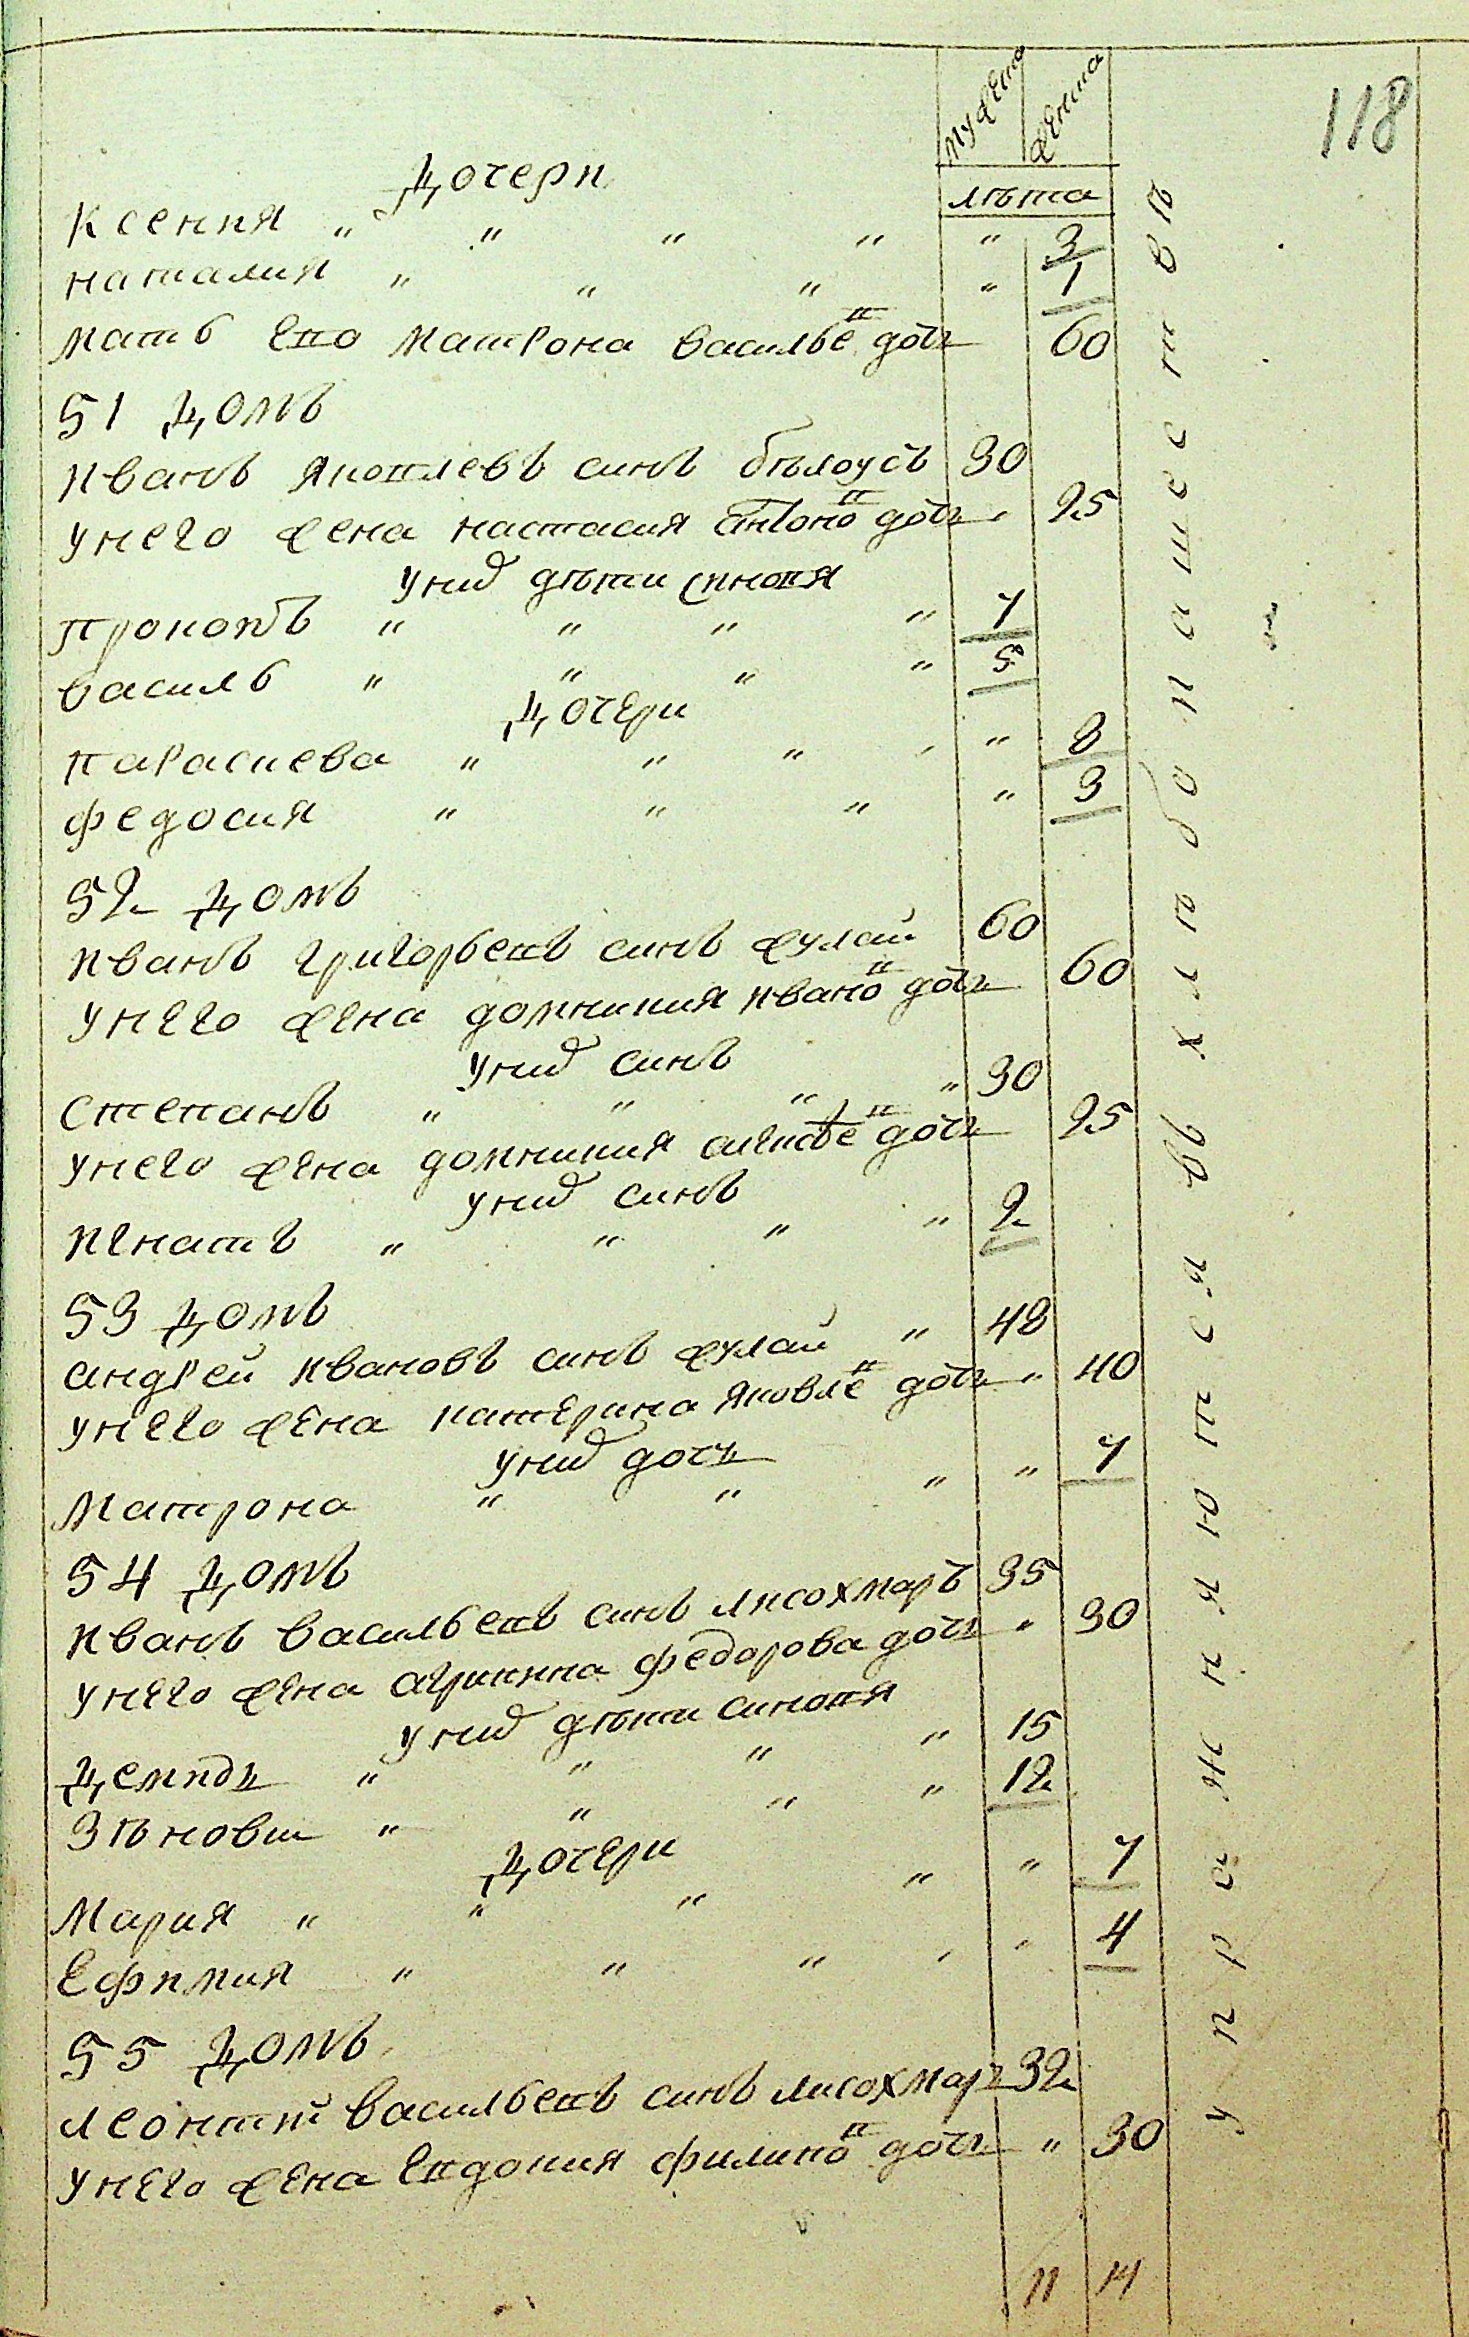 118
мужеска женска
лѣта
Дочери
Ксения " " " " " 3
наталия " " " " 1
мать его матрона василье҃в дочъ 60
51 Домъ
иванъ яковлевъ синъ бѣлоусъ 30
унего жена настасия антоно҃в дочъ " 25
унид дѣти синовя
прокопъ " " " " 7
василь " " " " 5
Дочери
параскева " " " " " 8
федосия " " " " 3
52 Домъ
иванъ григорьевъ синъ жулай 60
унего жена домникия ивано҃в дочъ 60
унид синъ
степанъ " " " " 30
унего жена домникия алексѣе҃в дочъ 25
унид синъ
игнатъ " " " " 2
53 Домъ
андрей ивановъ синъ жулай " 48
унего жена катерина яковле҃в дочъ " 40
унид дочъ
Матрона " " " " 7
54 Домъ
иванъ васильевъ синъ лисохмаръ 35
унего жена агрипина федорова дочъ " 30
унид дѣти синовя
Демидъ " " " " 15
Зѣновии " " " " 12
Дочери
Мария " " " " " 7
Ефимия " " " " " 4
55 Домъ
леонтий васильевъ синъ лисохмаръ 32
унего жена Евдокия филипо҃в дочъ " 30
11 14
упражняются въ хлѣбопашествѣ